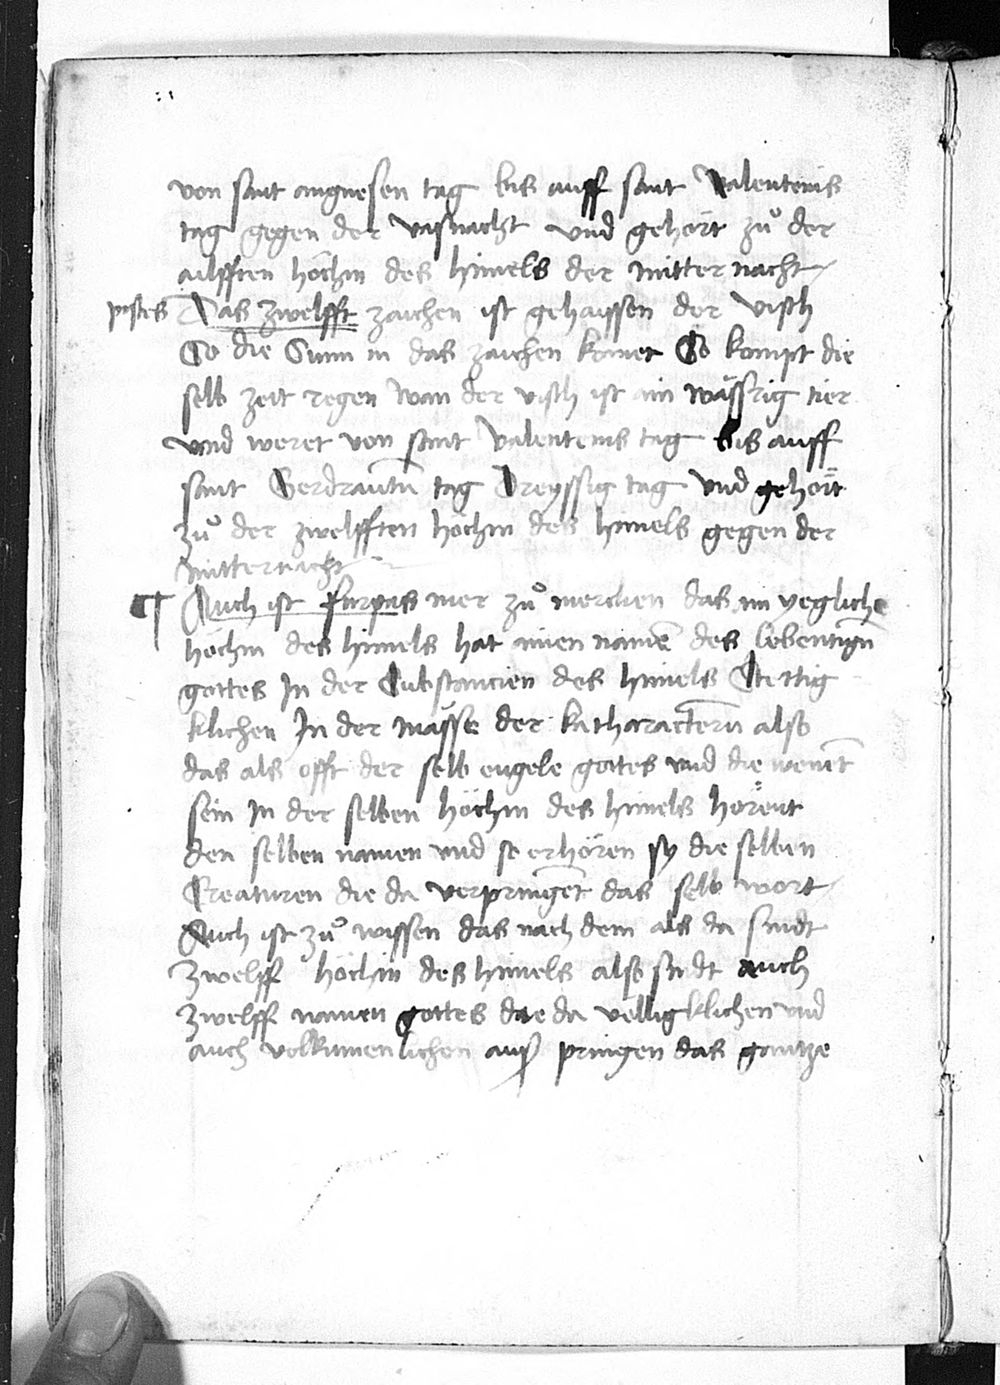 von sant angnesen tag bis auff sant Valenteins
tag gegen der vasnacht vnd gehört zů der
ailfften höchin des himels der mitternacht
pisces Das zwelfft zaichen ist gehaissen der visch
So die Sunn in das zaichen komet So kompt die
selb zeit regen wan der visch ist ain wässrig tier
vnd weret von sant Valenteins tag bis auff
sant Gerdrautn̄ tag Dreyssig tag vnd gehört
zů der zwelfften höchin des himels gegen der
mitternacht
¶ Auch ist furpas mer zů mercken das ain yegliche
höchin des himels hat ainen namē des lebentign̄
gottes In der Substancien des himels Stettig
klichen In der mässe der katharactern̄ also
das als offt der selb engele gottes vnd die
sein In der selben höchin des himels hörent
den selben namen vnd so erhören sy die selben
Creaturen die da verpringēt das selb wort
Auch ist zů wissen das nach dem als da sindt
zwelff höchin des himels also sindt auch
zwelff namen gottes die da velligklichen vnd
auch volkumenlichen auß pringen das gantze